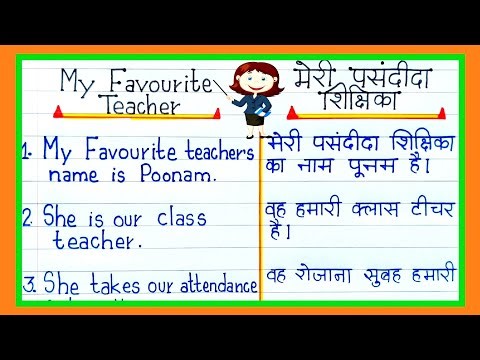 My Favourite
Teacher
मेरी पसंदीदा
शिक्षिका
1. My Favourite teachers
name is Poonam.
मेरी पसंदीदा शिक्षिका
का नाम पूनम है।
2. She is our class
teacher.
वह हमारी क्लास टीचर
है।
3. She takes our attendance
वह रोजाना सुबह हमारी